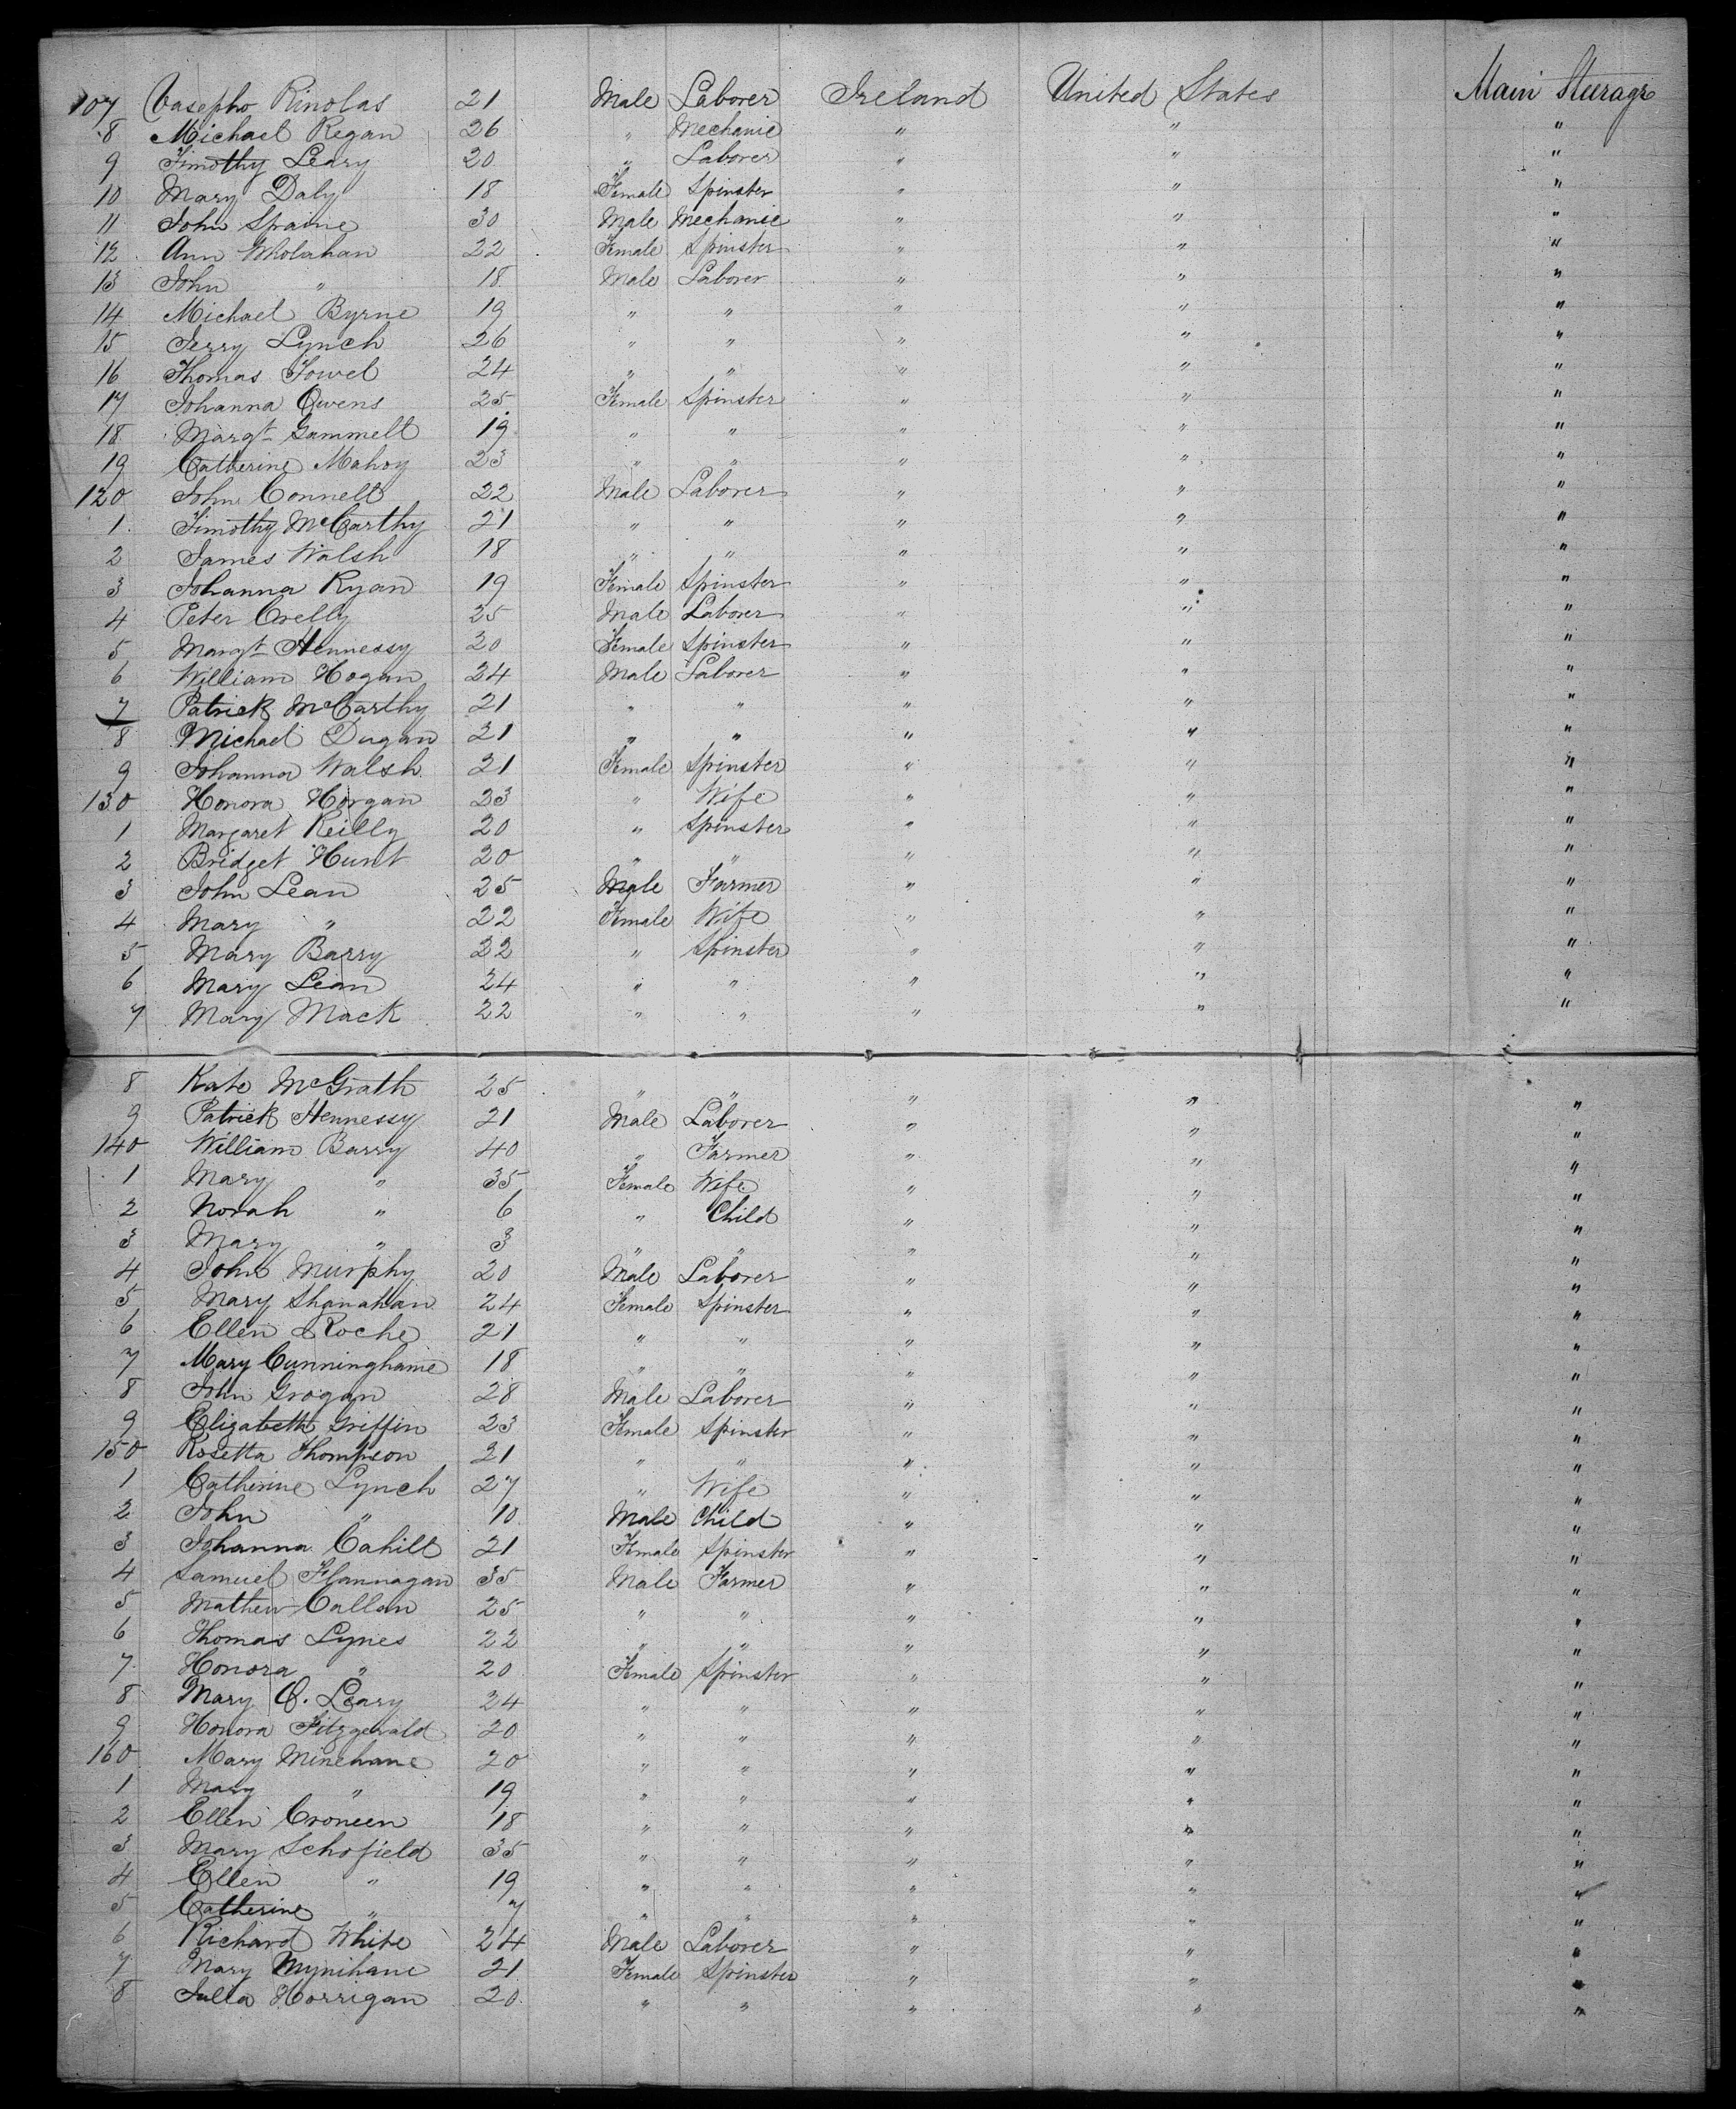 107 Casepho Rinolas 21 Male Laborer Ireland United States Main Steerage
8 Michael Regan 26 " Mechanic " " "
9 Timothy Leary 20 " Laborer " " "
10 Mary Daly 18 Female Spinster " " "
11 John Spaine 30 Male Mechanic " " "
12 Ann Wholahan 22 Female Spinster " " "
13 John " 18 Male Laborer " " "
14 Michael Byrne 19 " " " " "
15 Jerry Lynch 26 " " " " "
16 Thomas Towel 24 " " " " "
17 Johanna Owens 25 Female Spinster " " "
18 Margt Gammell 19 " " " " "
19 Catherine Mahoy 23 " " " " "
120 John Connell 22 Male Laborer " " "
1 Timothy McCarthy 21 " " " " "
2 James Walsh 18 " " " " "
3 Johanna Ryan 19 Female Spinster " " "
4 Peter Crelly 25 Male Laborer " " "
5 Margt Hennessy 20 Female Spinster " " "
6 William Hogan 24 Male Laborer " " "
7 Patrick McCarthy 21 " " " " "
8 Michael Dugan 21 " " " " "
9 Johanna Walsh 21 Female Spinster " " "
130 Honora Horgan 23 " Wife " " "
1 Margaret Reilly 20 " Spinster " " "
2 Bridget Hunt 20 " " " " "
3 John Lean 25 Male Farmer " " "
4 Mary " 22 Female Wife " " "
5 Mary Barry 22 " Spinster " " "
6 Mary Lean 24 " " " " "
7 Mary Mack 22 " " " " "
8 Kate McGrath 25 " " " " "
9 Patrick Hennessy 21 Male Laborer " " "
140 William Barry 40 " Farmer " " "
1 Mary " 35 Female Wife " " "
2 Norah " 6 " Child " " "
3 Mary " 3 " " " " "
4 John Murphy 20 Male Laborer " " "
5 Mary Shanahan 24 Female Spinster " " "
6 Ellen Roche 21 " " " " "
7 Mary Cunninghame 18 " " " " "
8 John Grogan 28 Male Laborer " " "
9 Elizabeth Griffin 23 Female Spinster " " "
150 Rosetta Thompson 21 " " " " "
1 Catherine Lynch 27 " Wife " " "
2 John " 10 Male Child " " "
3 Johanna Cahill 21 Female Spinster " " "
4 Samuel Flannagan 35 Male Farmer " " "
5 Mathew Callan 25 " " " " "
6 Thomas Lynes 22 " " " " "
7 Honora " 20 Female Spinster " " "
8 Mary O. Leary 24 " " " " "
9 Honora Fitzgerald 20 " " " " "
160 Mary Minehane 20 " " " " "
1 Mary " 19 " " " " "
2 Ellen Croneen 18 " " " " "
3 Mary Schofield 35 " " " " "
4 Ellen " 19 " " " " "
5 Catherine " 7 " " " " "
6 Richard White 24 Male Laborer " " "
7 Mary Mynihane 21 Female Spinster " " "
8 Julia Horrigan 20 " " " " "